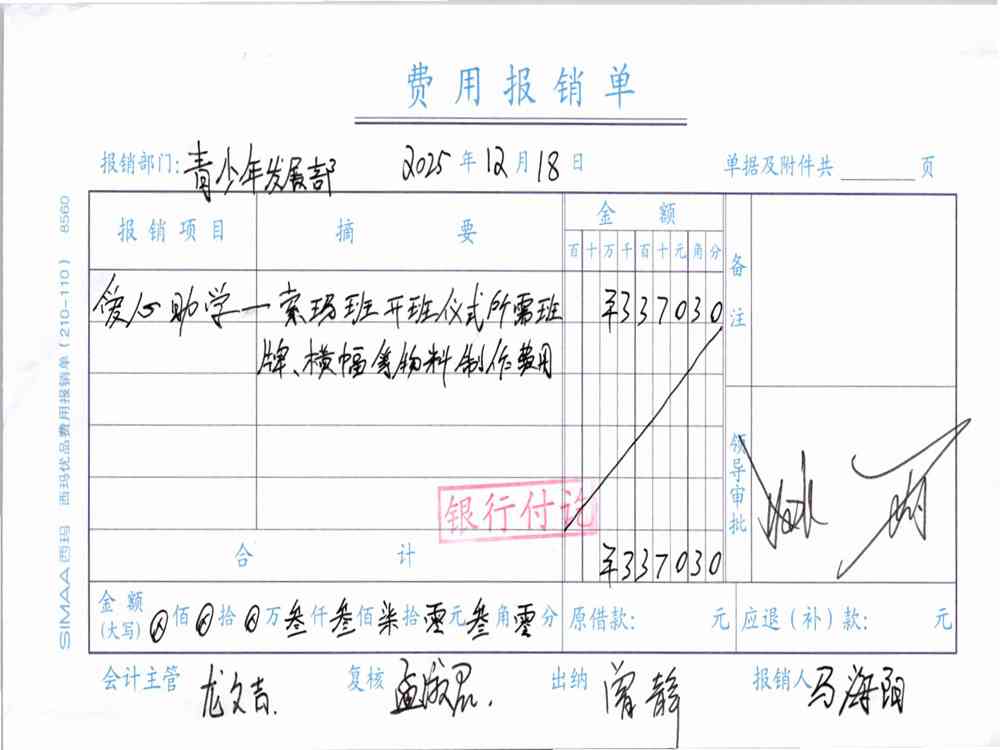 费用报销单
报销部门：青少年发展部 2025年12月18日 单据及附件共 页
报销项目 摘要 金额 备注
百十万千百十元角分
爱心助学—索玛班开班仪式所需班 ¥337030
牌、横幅等物料制作费用
领导审批
银行付讫
合计 ¥337030
金额(大写) 佰 拾 万叁仟叁佰柒拾零元叁角零分 原借款： 元 应退（补）款： 元
会计主管 龙文吉. 复核 出纳 曾静 报销人 马海阳
SIMAA西玛 西玛优品费用报销单（210-110） 8560